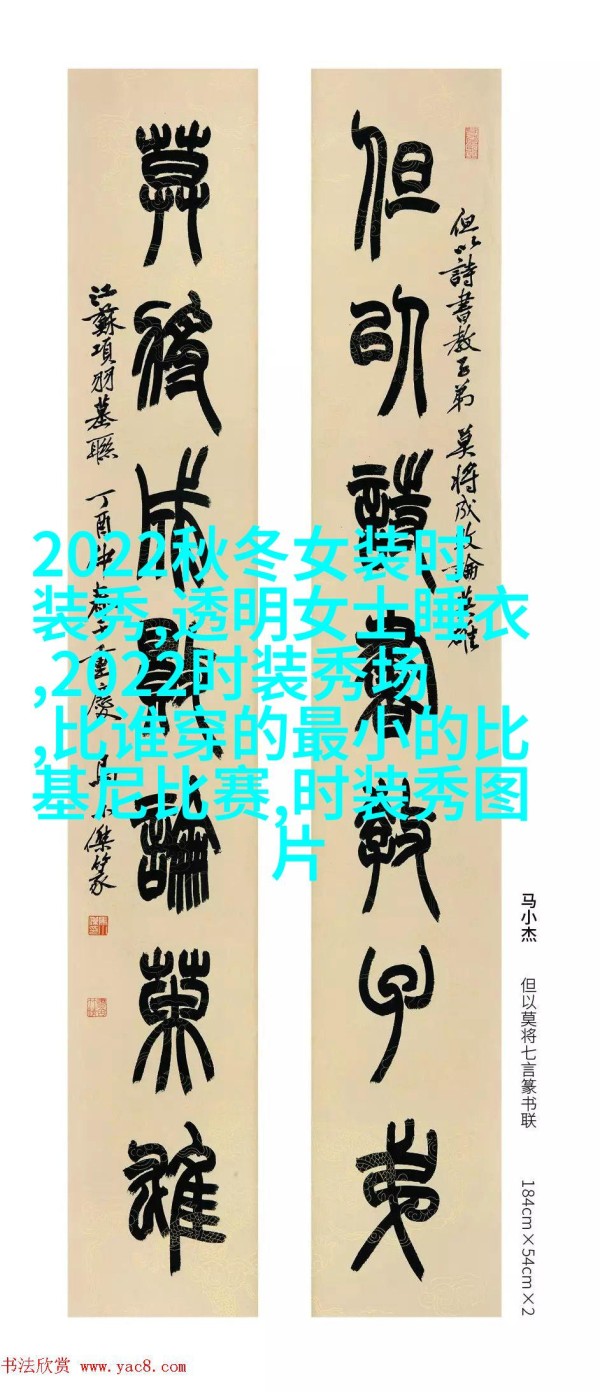 但以詩書教子弟
莫將成敗論英雄
但以詩書教子弟 莫將成敗論英雄
江蘇項羽墓聯 丁酉
馬小傑篆
2022秋冬女装时
装秀,透明女士睡衣
,2022时装秀场
,比谁穿的最小的比
基尼比赛,时装秀图
片
马小杰
但以莫将七言篆书联
184cm×54cm×2
书法欣赏 www.yac8.com